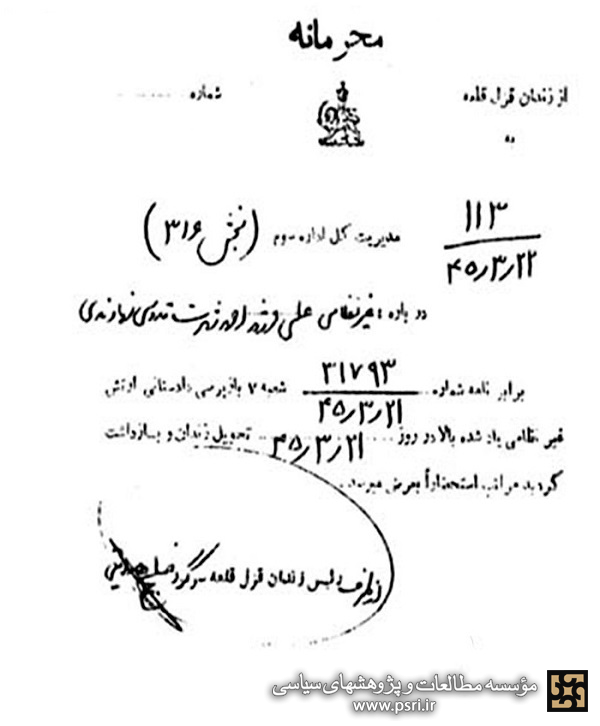 محرمانه
از زندان قزل قلعه
شماره
به
۱۱۳
۴۵/۳/۲۲
مدیریت کل اداره سوم (بخش ۳۱۶)
در باره: غیرنظامی علی فرزند احمد شهرت قدوسی نهاوندی
برابر نامه شماره ۳۱۷۹۳
۴۵/۳/۲۱ شعبه ۷ بازپرسی دادستانی ارتش
غیر نظامی یاد شده بالا در روز ۴۵/۳/۲۱ تحویل زندان و بازداشت
گردید مراتب استحضاراً بعرض میرسد.
از طرف رئیس زندان قزل قلعه سرگرد
مؤسسه مطالعات و پژوهشهای سیاسی
www.psri.ir